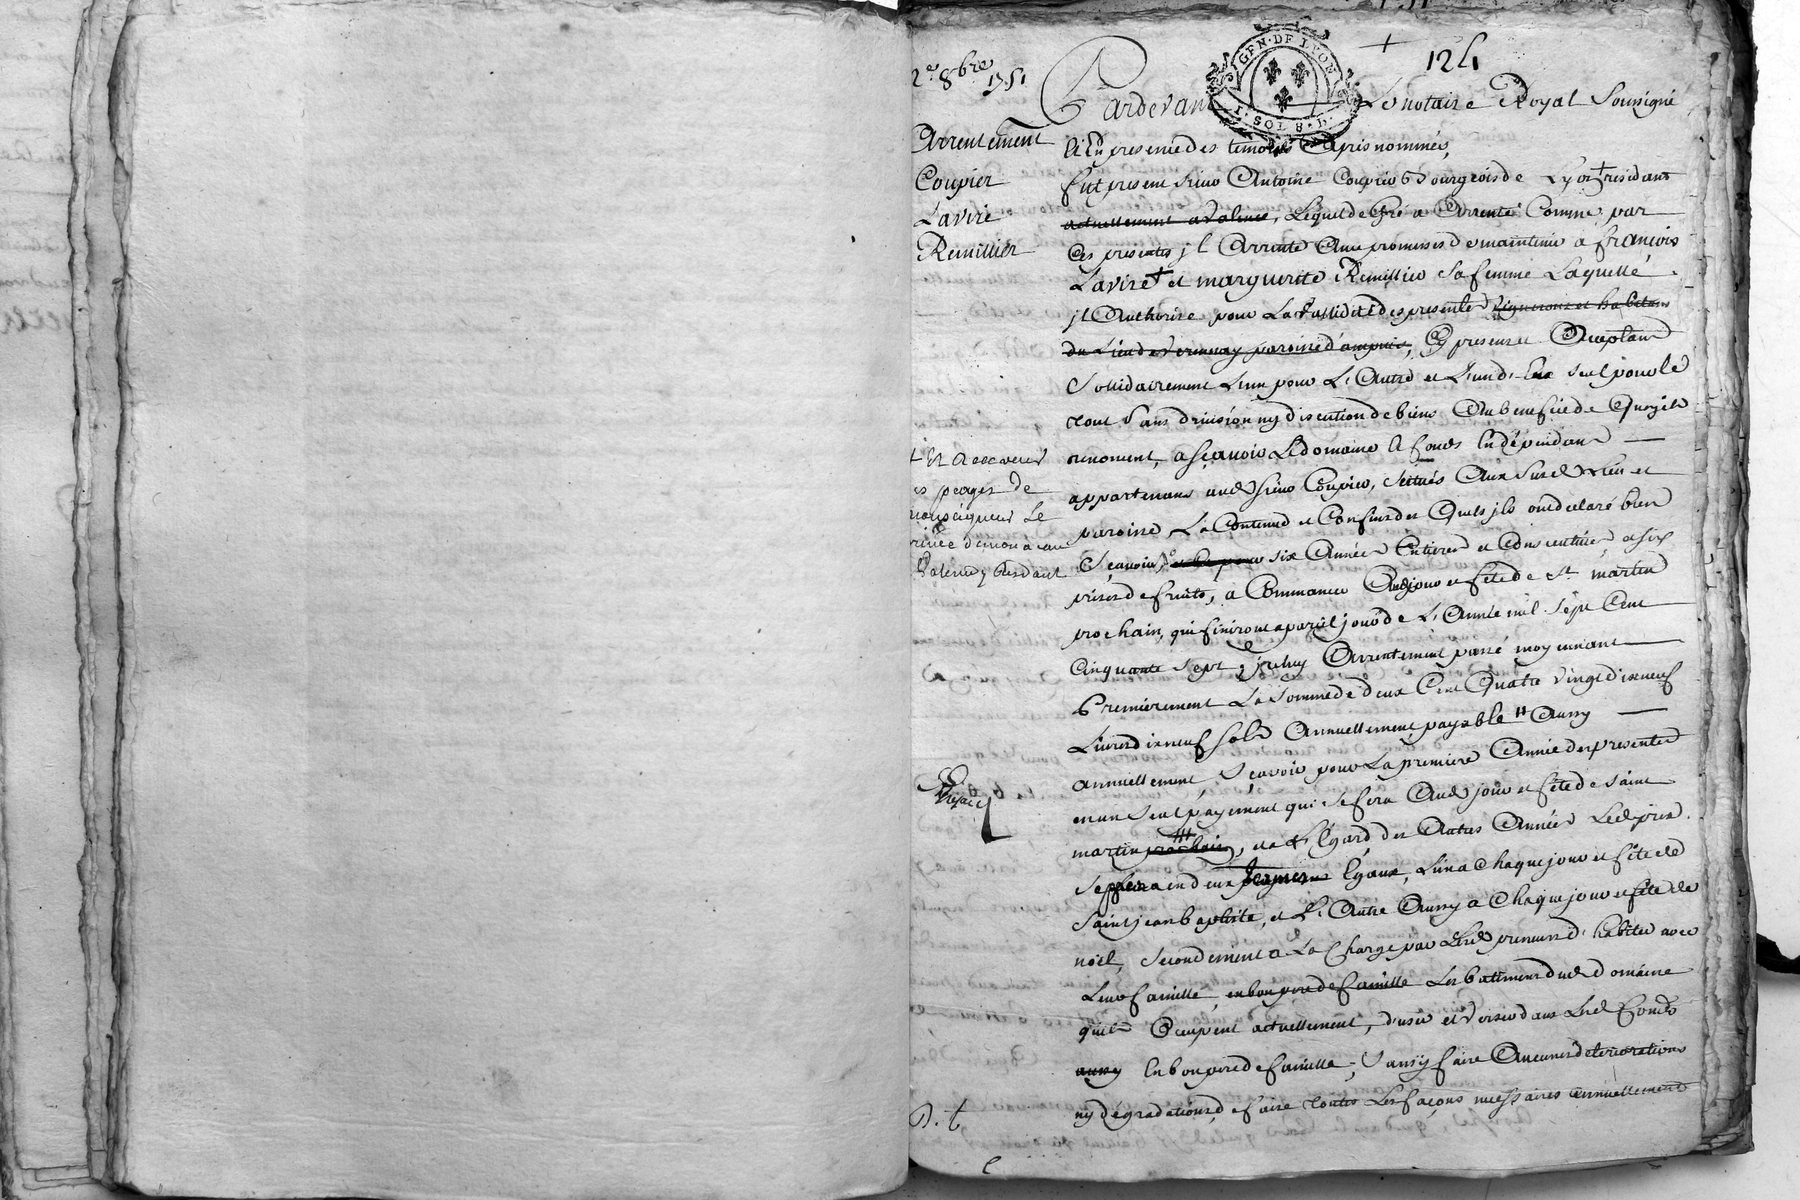 124
2e 8bre 1751
Arrentement
Coupier
Lavire
Remillier
GEN. DE LYON
1. SOL 8. D.
Pardevant Le notaire Royal Soussigné
et En presence des temoins Apres nommés,
fut present sieur Antoine Coupier Bourgeois de Lyon + residant
actuellement a Valence, Lequel de Gré a Arrenté Comme par
Ces presentes jl Arrente Avec promesses de maintenir à françois
Lavire + et marguerite Remillier sa femme Laquelle
jl Authorise pour La Validité des presentes Vignerons et habitans
du Lieu de Verenay paroisse d'ampuis, Cy presens et Acceptans
Solidairement L'un pour L'Autre et L'un d'Eux seul pour le
tout Sans division ny discution de biens Au benefice de Quoy ils
renoncent, a sçavoir Le domaine & fonds En dépendans
appartenans audt sieur Coupier, scitués Aux susdt Lieu et
paroisse, La Contenue et Confins des Quels jls ont déclaré bien
Sçavoir, et ce pour six Années Entieres et Consecutives a six
prises de fruits, a Commancer Audt jour et féte de St martin
prochain, qui finiront a pareil jour de L'Année mil sept Cent
Cinquante sept, Arrentement passé moyennant
Premierement La Somme de deux Cent Quatre vingt dixneuf
Livres dixneuf sols Annuellement payable Aussy
annuellement, Sçavoir pour La premiere Année des presentes
en un seul payement qui se fera Audt jour et féte de saint
martin prochain, et a L'Egard des Autres Années Ledt prix
se payera en deux termes Egaux, L'un a Chaque jour et féte de
saint jean baptiste, et L'Autre Aussy a Chaque jour et féte de
noël, Secondement a La Charge par Lesdt preneurs d'habiter avec
Leur famille, en bon pere de famille Les batimens dudt domaine
quils Occupent actuellement, d'user et Verser dans Lesdt fonds
aussy En bon pere de famille, Sans y faire Aucunes deteriorations
ny dégradations, de faire toutes Les façons necessaires annuellement
+ Et Receveur
es peages de
monseigneur Le
prince de monaco au
Valence, Residant